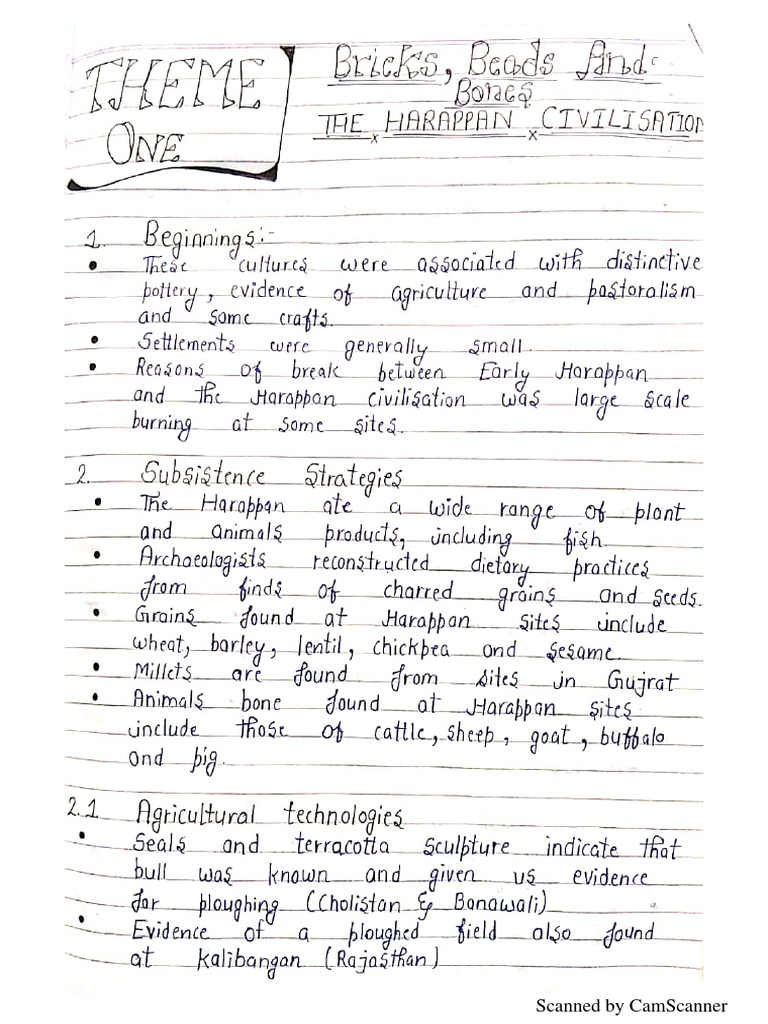 THEME
ONE
Bricks, Beads And
Bones
THE x HARAPPAN x CIVILISATION
1. Beginnings:-
• These cultures were associated with distinctive
pottery, evidence of agriculture and pastoralism
and some crafts.
• Settlements were generally small.
• Reasons of break between Early Harappan
and the Harappan civilisation was large scale
burning at some sites.
2. Subsistence Strategies
• The Harappan ate a wide range of plant
and animals products, including fish.
• Archaeologists reconstructed dietary practices
from finds of charred grains and seeds.
• Grains found at Harappan sites include
wheat, barley, lentil, chickpea and sesame.
• Millets are found from sites in Gujrat
• Animals bone found at Harappan sites
include those of cattle, sheep, goat, buffalo
and pig.
2.1 Agricultural technologies
• Seals and terracotta sculpture indicate that
bull was known and given us evidence
for ploughing (Cholistan & Banawali)
• Evidence of a ploughed field also found
at Kalibangan (Rajasthan)
Scanned by CamScanner